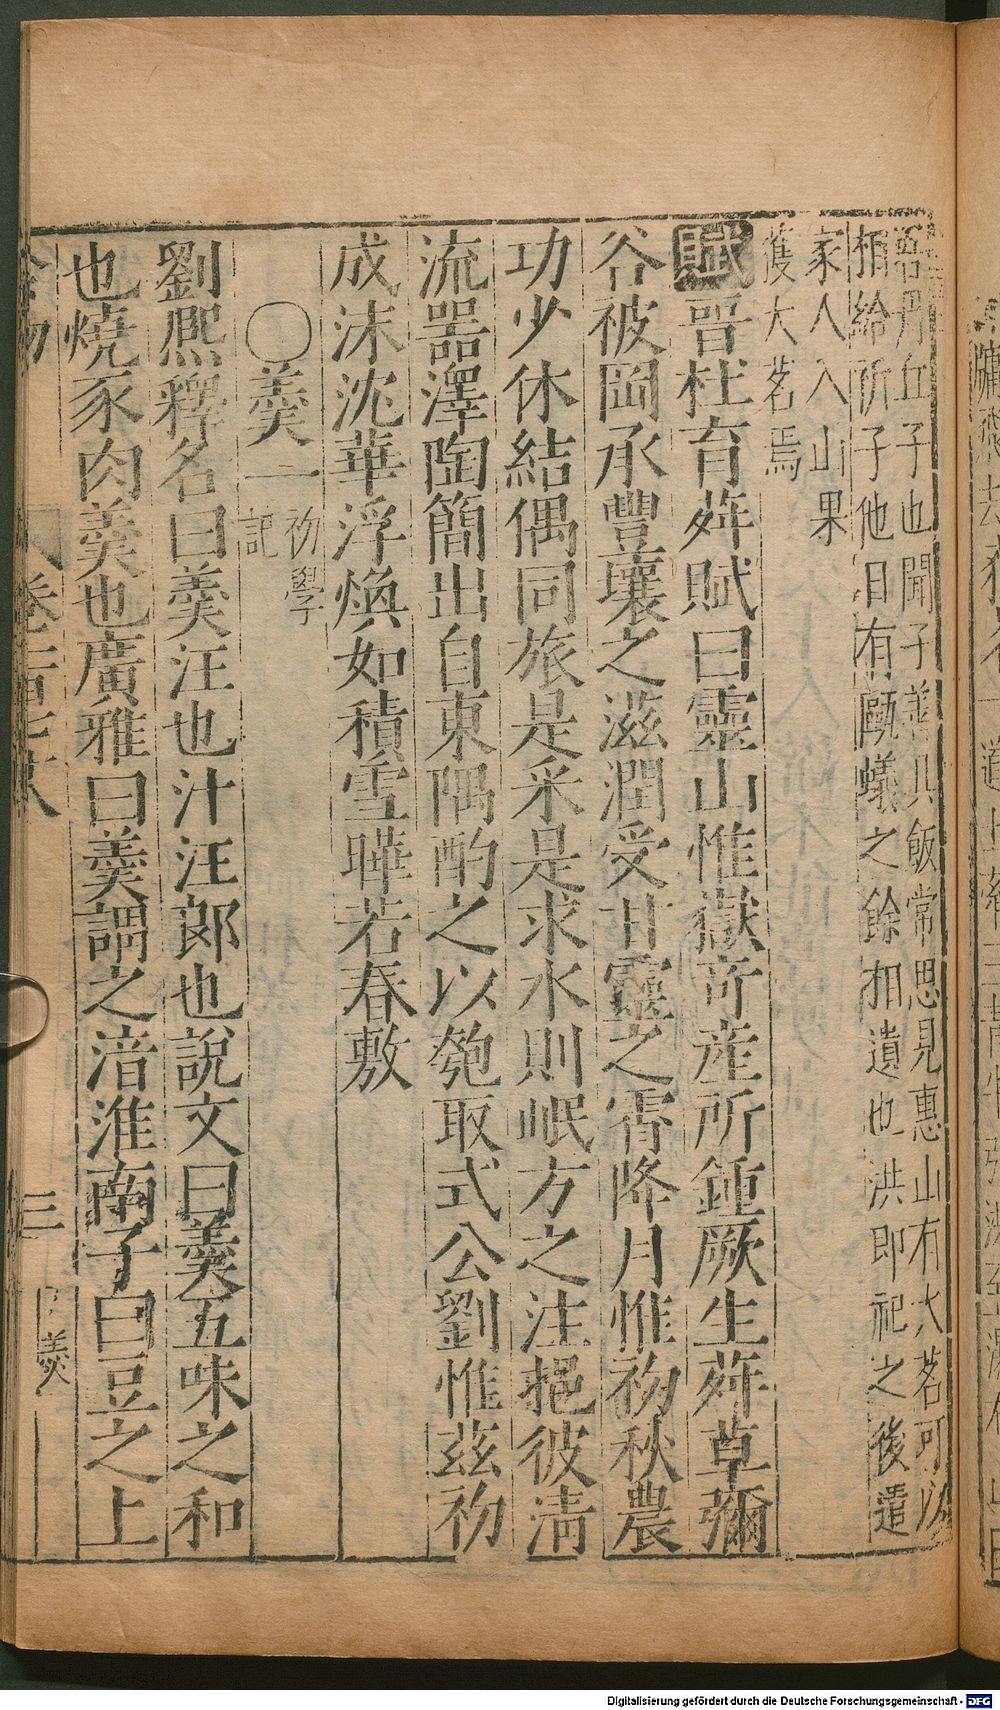 吾丹丘子也聞子善具飯常思見惠山有大茗可以
相給祈子他日有甌蟻之餘相遺也洪即祀之後遣
家人入山果
獲大茗焉
賦晉杜育荈賦曰靈山惟嶽竒産所鍾厥生荈草彌
谷被岡承豐壤之滋潤受甘靈之霄降月惟初秋農
功少休結偶同旅是采是求水則岷方之注挹彼清
流器澤陶簡出自東隅酌之以匏取式公劉惟茲初
成沫沈華浮煥如積雪曄若春敷
○羮一 初學記
劉熈釋名曰羮汪也汁汪郎也說文曰羮五味之和
也燒豕肉羮也廣雅曰羮謂之湆淮南子曰豆之上
三 羮
Digitalisierung gefördert durch die Deutsche Forschungsgemeinschaft - DFG